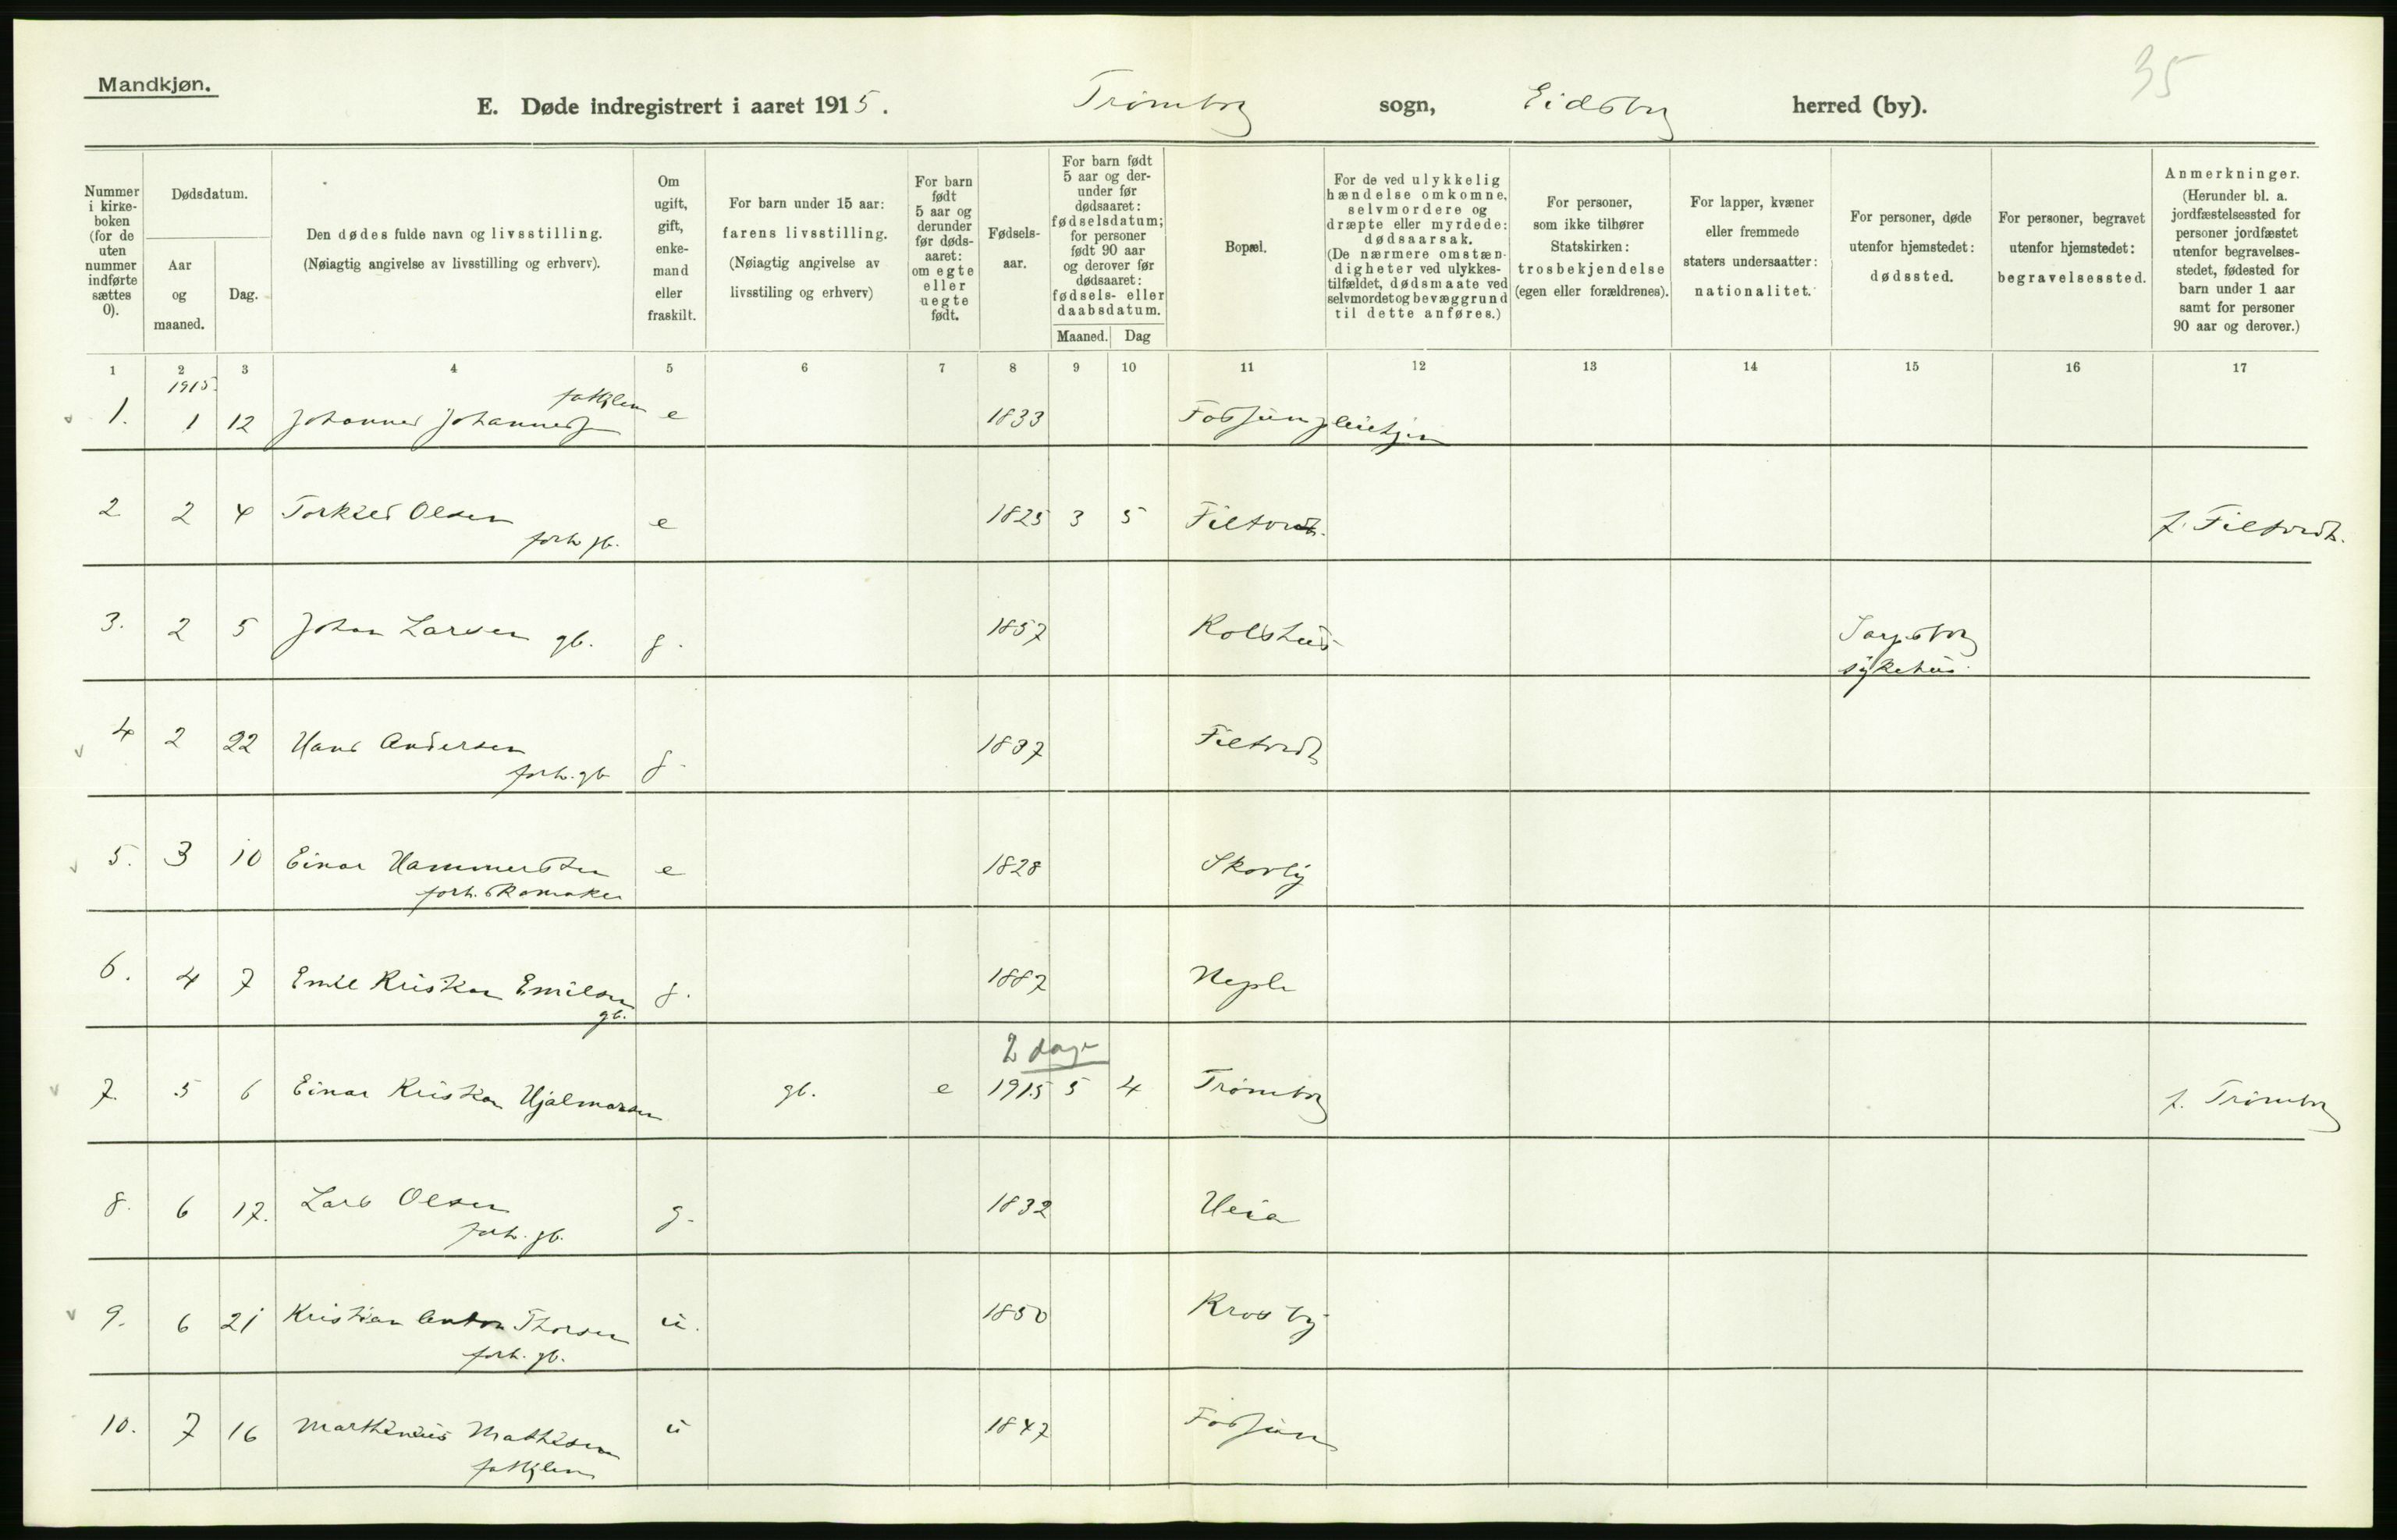 35
Mandkjøn.
E. Døde indregistrert i aaret 1915. Trømborg sogn, Eidsberg herred (by).
Nummer i kirke-boken (for de uten nummer indførte sættes 0).
Dødsdatum.
Aar og maaned.
Dag.
Den dødes fulde navn og livsstilling.
(Nøiagtig angivelse av livsstilling og erhverv).
Om ugift, gift, enke-mand eller fraskilt.
For barn under 15 aar: farens livsstilling.
(Nøiagtig angivelse av livsstiling og erhverv)
For barn født 5 aar og derunder før døds-aaret: om egte eller uegte født.
Fødsels-aar.
For barn født 5 aar og der-under før dødsaaret: fødselsdatum; for personer født 90 aar og derover før dødsaaret: fødsels- eller daabsdatum.
Maaned. Dag
Bopæl.
For de ved ulykkelig hændelse omkomne, selvmordere og dræpte eller myrdede: dødsaarsak.
(De nærmere omstæn-digheter ved ulykkes-tilfældet, dødsmaate ved selvmordet og bevæggrund til dette anføres.)
For personer, som ikke tilhører Statskirken: trosbekjendelse (egen eller forældrenes).
For lapper, kvæner eller fremmede staters undersaatter: nationalitet.
For personer, døde utenfor hjemstedet: dødssted.
For personer, begravet utenfor hjemstedet: begravelsessted.
Anmerkninger.
(Herunder bl. a. jordfæstelsessted for personer jordfæstet utenfor begravelses-stedet, fødested for barn under 1 aar samt for personer 90 aar og derover.)
1 2 3 4 5 6 7 8 9 10 11 12 13 14 15 16 17
1915.
1. 1 12 Johannes Johannessen e 1833 Fossum
2 2 4 Torkild Olsen e 1825 3 5 Filtvedt. f. Filtvedt.
forh. gb.
3. 2 5 Johan Larsen gb. g. 1857 Kolshus Sarpsborg
sykehus.
4 2 22 Hans Andersen g. 1837 Filtvedt
forh. gb.
5. 3 10 Einar Hammersten e 1828 Skovby
forh. skomaker
6. 4 7 Emil Kristian Emilsen g. 1887 Neple
gb.
2 dage
7. 5 6 Einar Kristian Hjalmarsen gb. e 1915 5 4 Trømborg f. Trømborg
8. 6 17. Lars Olsen g. 1832 Heia
forh. gb.
9. 6 21 Kristian Anton Thorsen u. 1850 Krosby
forh. gb.
10. 7 16 Marthinius Mathisen u 1847 Fossum